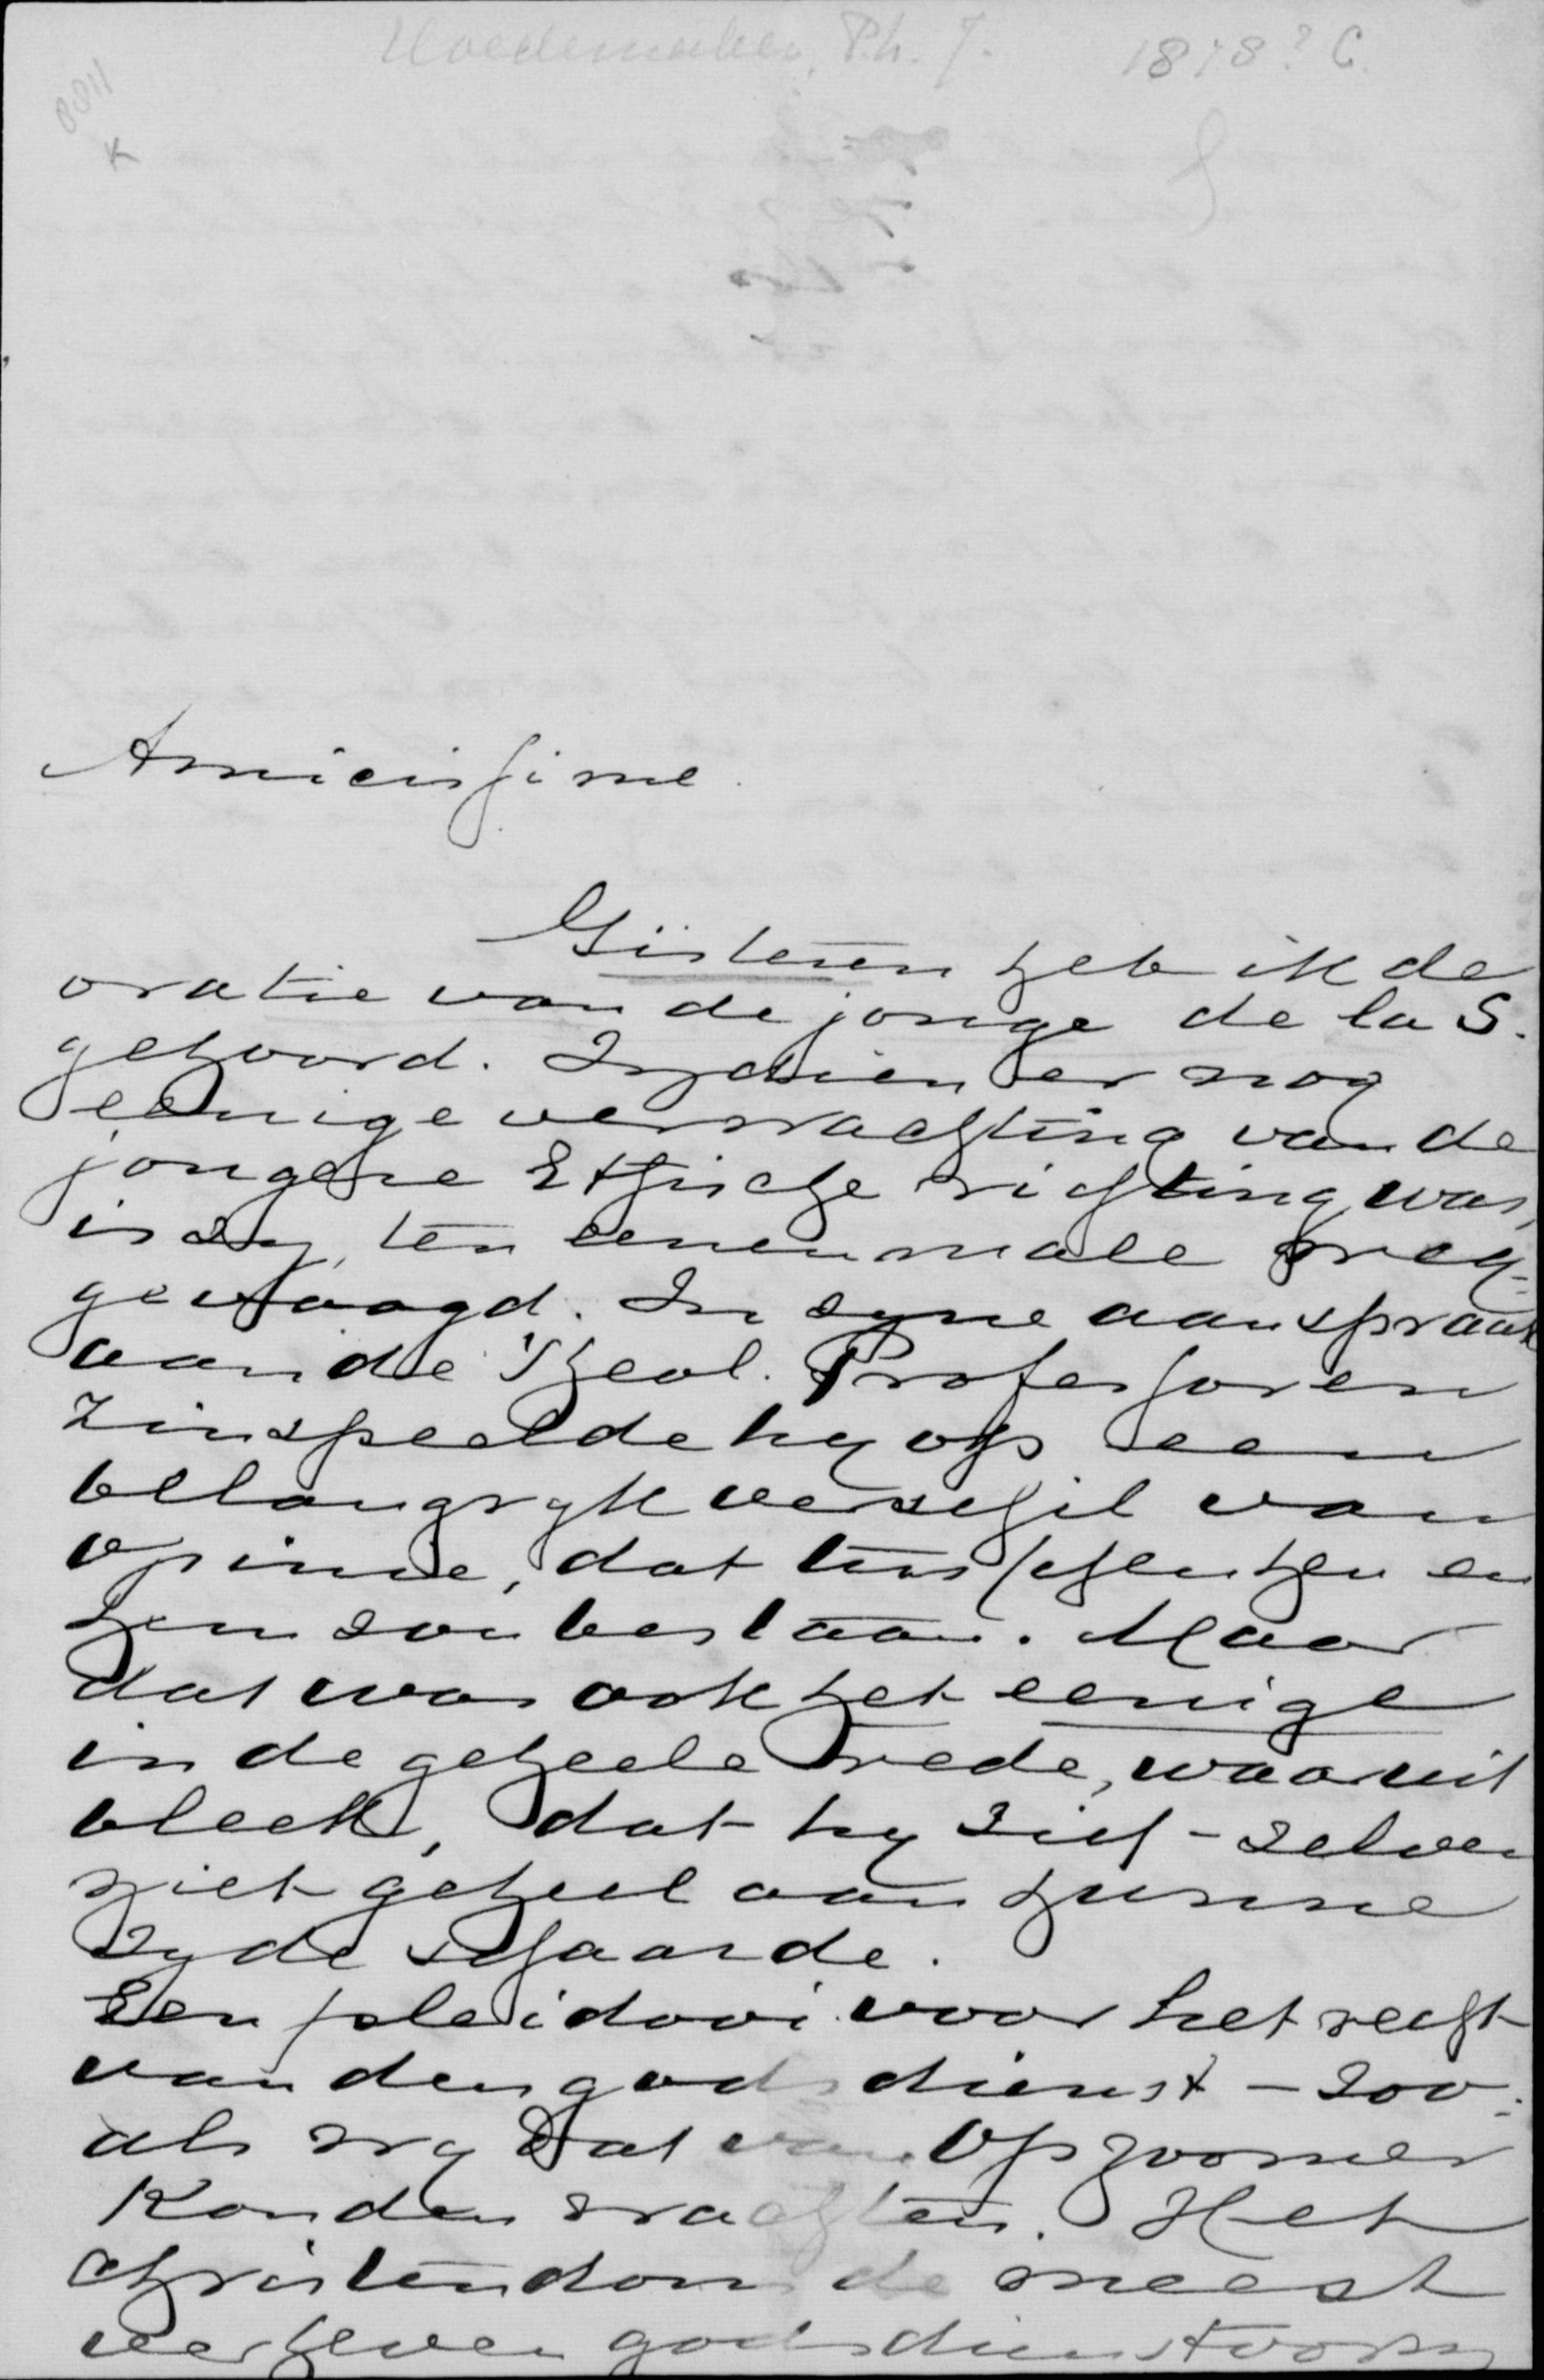 Hoedemaker, Ph. J. 1878? C.
1180
K
Amicissime.
Gisteren heb ik de
oratie van de jonge de la S.
gehoord. Indien er nog
eenige verwachting van de
jongere Ethische richting was,
is zy ten eenenmale weg-
gevaagd. In zyne aanspraak
aan de Theol. Professoren
zinspeelde hy op een
belangryk verschil van
opinie, dat tusschen hen en
hem zou bestaan. Maar
dat was ook het eenige
in de geheele rede, waaruit
bleek, dat hy zich-zelven
niet geheel aan hunne
zyde schaarde.
Een pleidooi voor het recht
van den godsdienst – zoo-
als wy dat van Opzoomer
konden wachten. Het
Christendom de meest
verheven godsdienstvorm